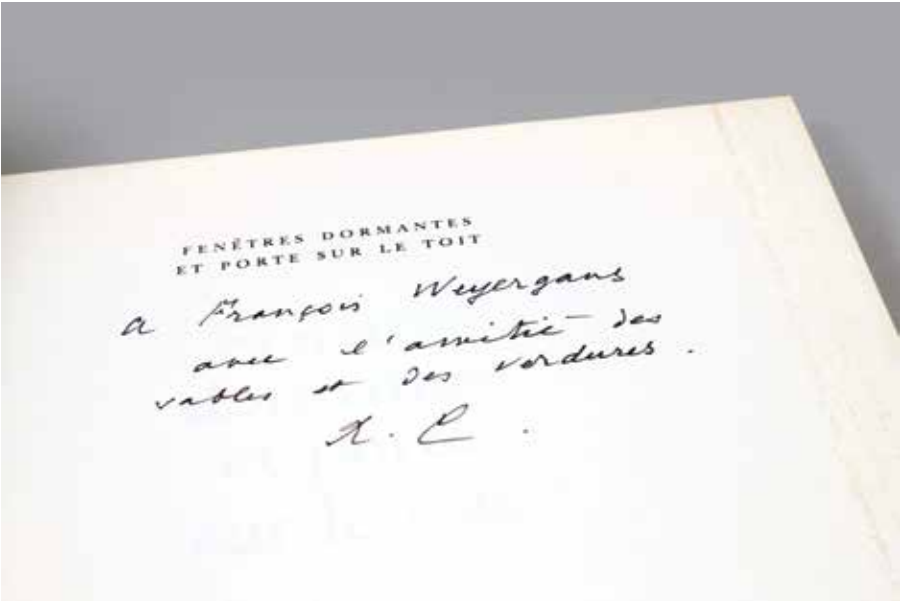 FENÊTRES DORMANTES
ET PORTE SUR LE TOIT
a François Weyergans
avec l'amitié des
sables et des verdures.
R. C.